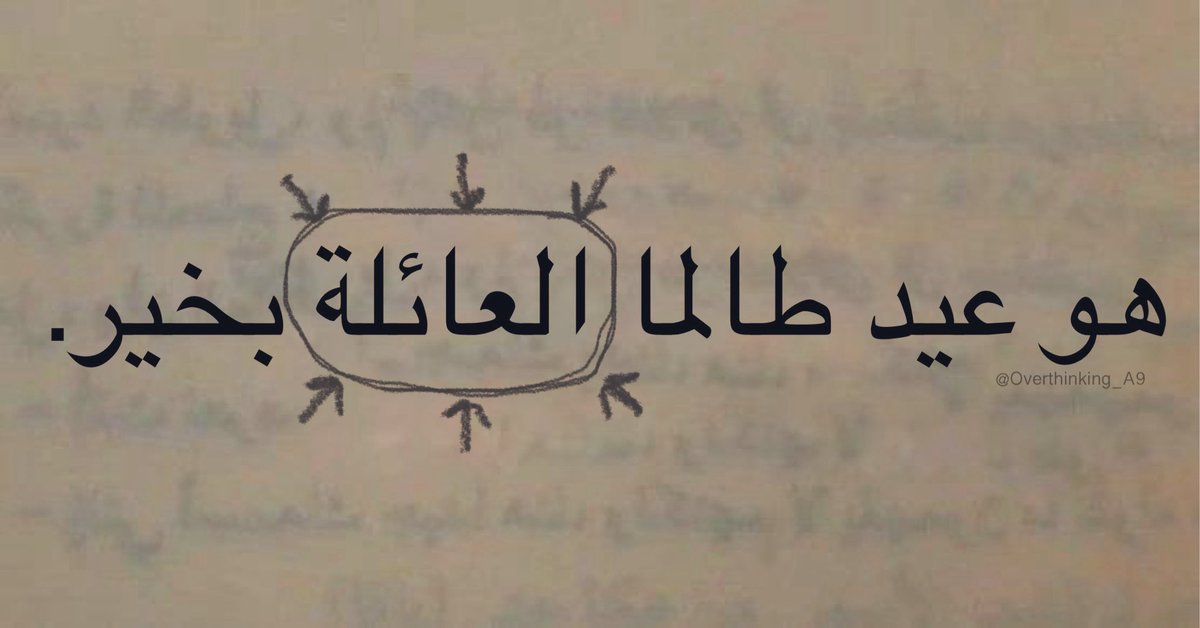 هو عيد طالما العائلة بخير.
@Overthinking_A9